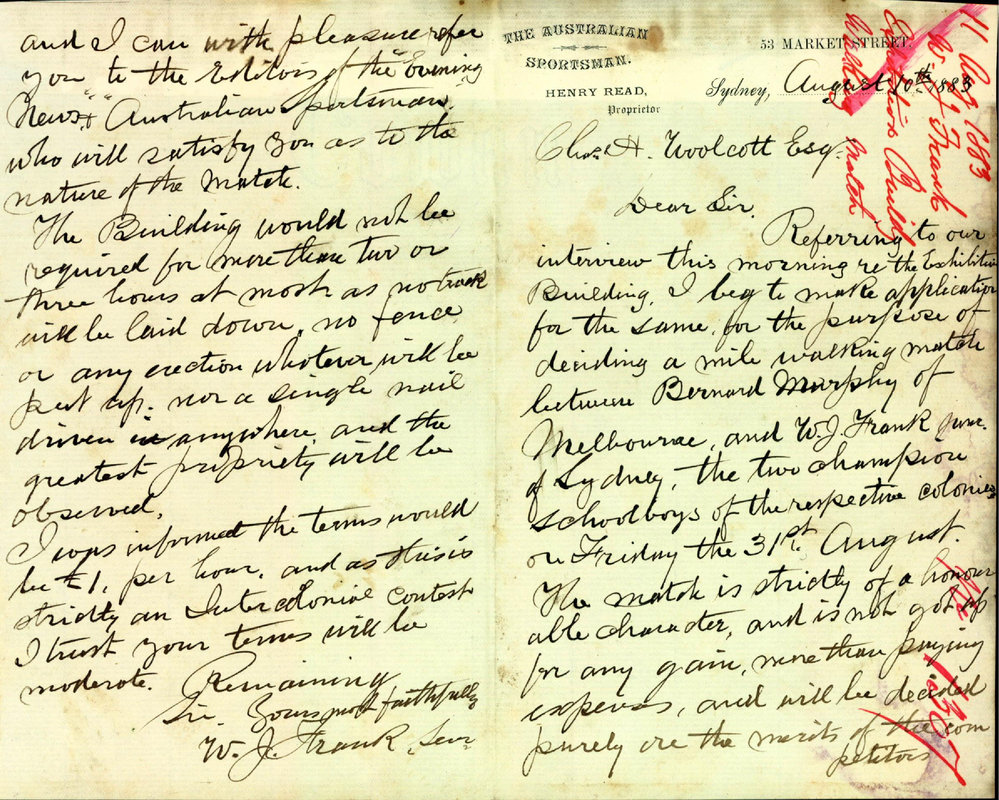 THE AUSTRALIAN
SPORTSMAN.
HENRY READ,
Proprietor
53 MARKET STREET,
Sydney, August 10th 1883
Chas. H. Woolcott Esq.
Dear Sir.
Referring to our
interview this morning re the Exhibition
Building, I beg to make application
for the same, for the purpose of
deciding a mile walking match
between Bernard Murphy of
Melbourne, and W. J. Frank junr.
of Sydney, the two champion
schoolboys of the respective colonies
on Friday the 31st. August.
The match is strictly of a honour
able character, and is not got up
for any gain, more than paying
expenses, and will be decided
purely on the merits of the com
petitors
and I can with pleasure refer
you to the Editors of the "Evening
News" & "Australian Sportsman"
who will satisfy you as to the
nature of the Match.
The Building would not be
required for more than two or
three hours at most as no track
will be laid down, no fence
or any erection whatever will be
put up. nor a single nail
driven in anywhere, and the
greatest propriety will be
observed.
I was informed the terms would
be £1. per hour, and as this is
strictly an Intercolonial contest
I trust your terms will be
moderate. Remaining
Sir, Yours most faithfully
W. J. Frank, Senr
11 Aug 1883
W. J. Frank
Exhibition Build
Walking Match